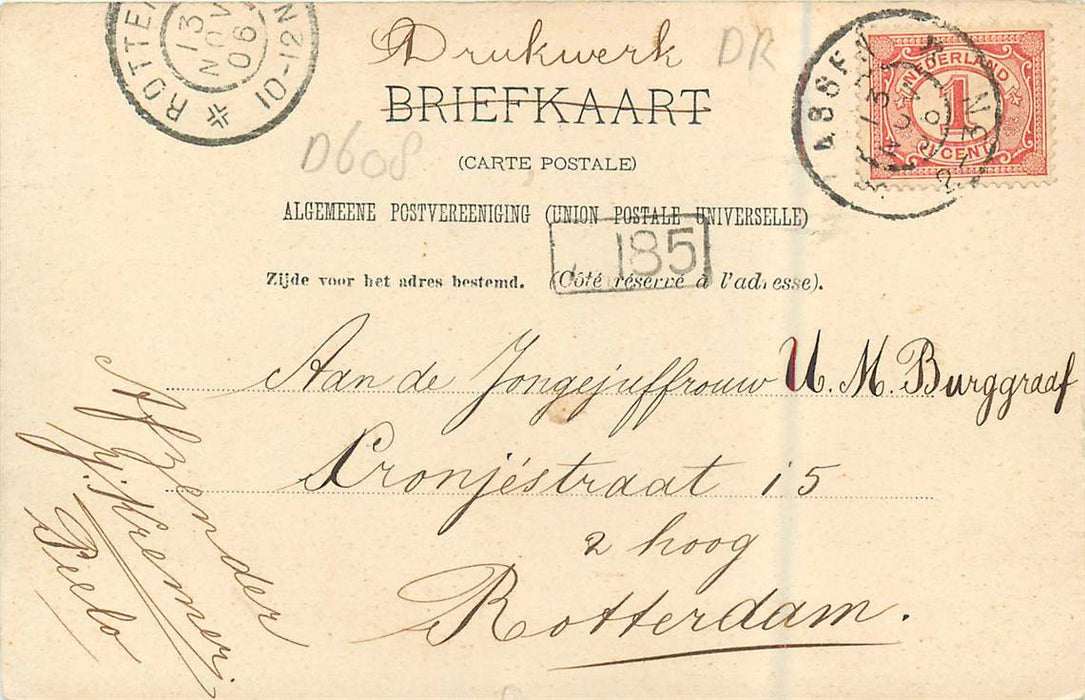 Drukwerk DR
BRIEFKAART
(CARTE POSTALE)
D608
ALGEMEENE POSTVEREENIGING (UNION POSTALE UNIVERSELLE)
185
Zijde voor het adres bestemd. (Côté réservé à l'adresse).
ROTTE
13
NOV
06
10-12 N
NEDERLAND
1
CENT
Aan de Jongejuffrouw U. M. Burggraaf
Cronjéstraat 15
2 hoog
Rotterdam.
Afzender
G. Kremer